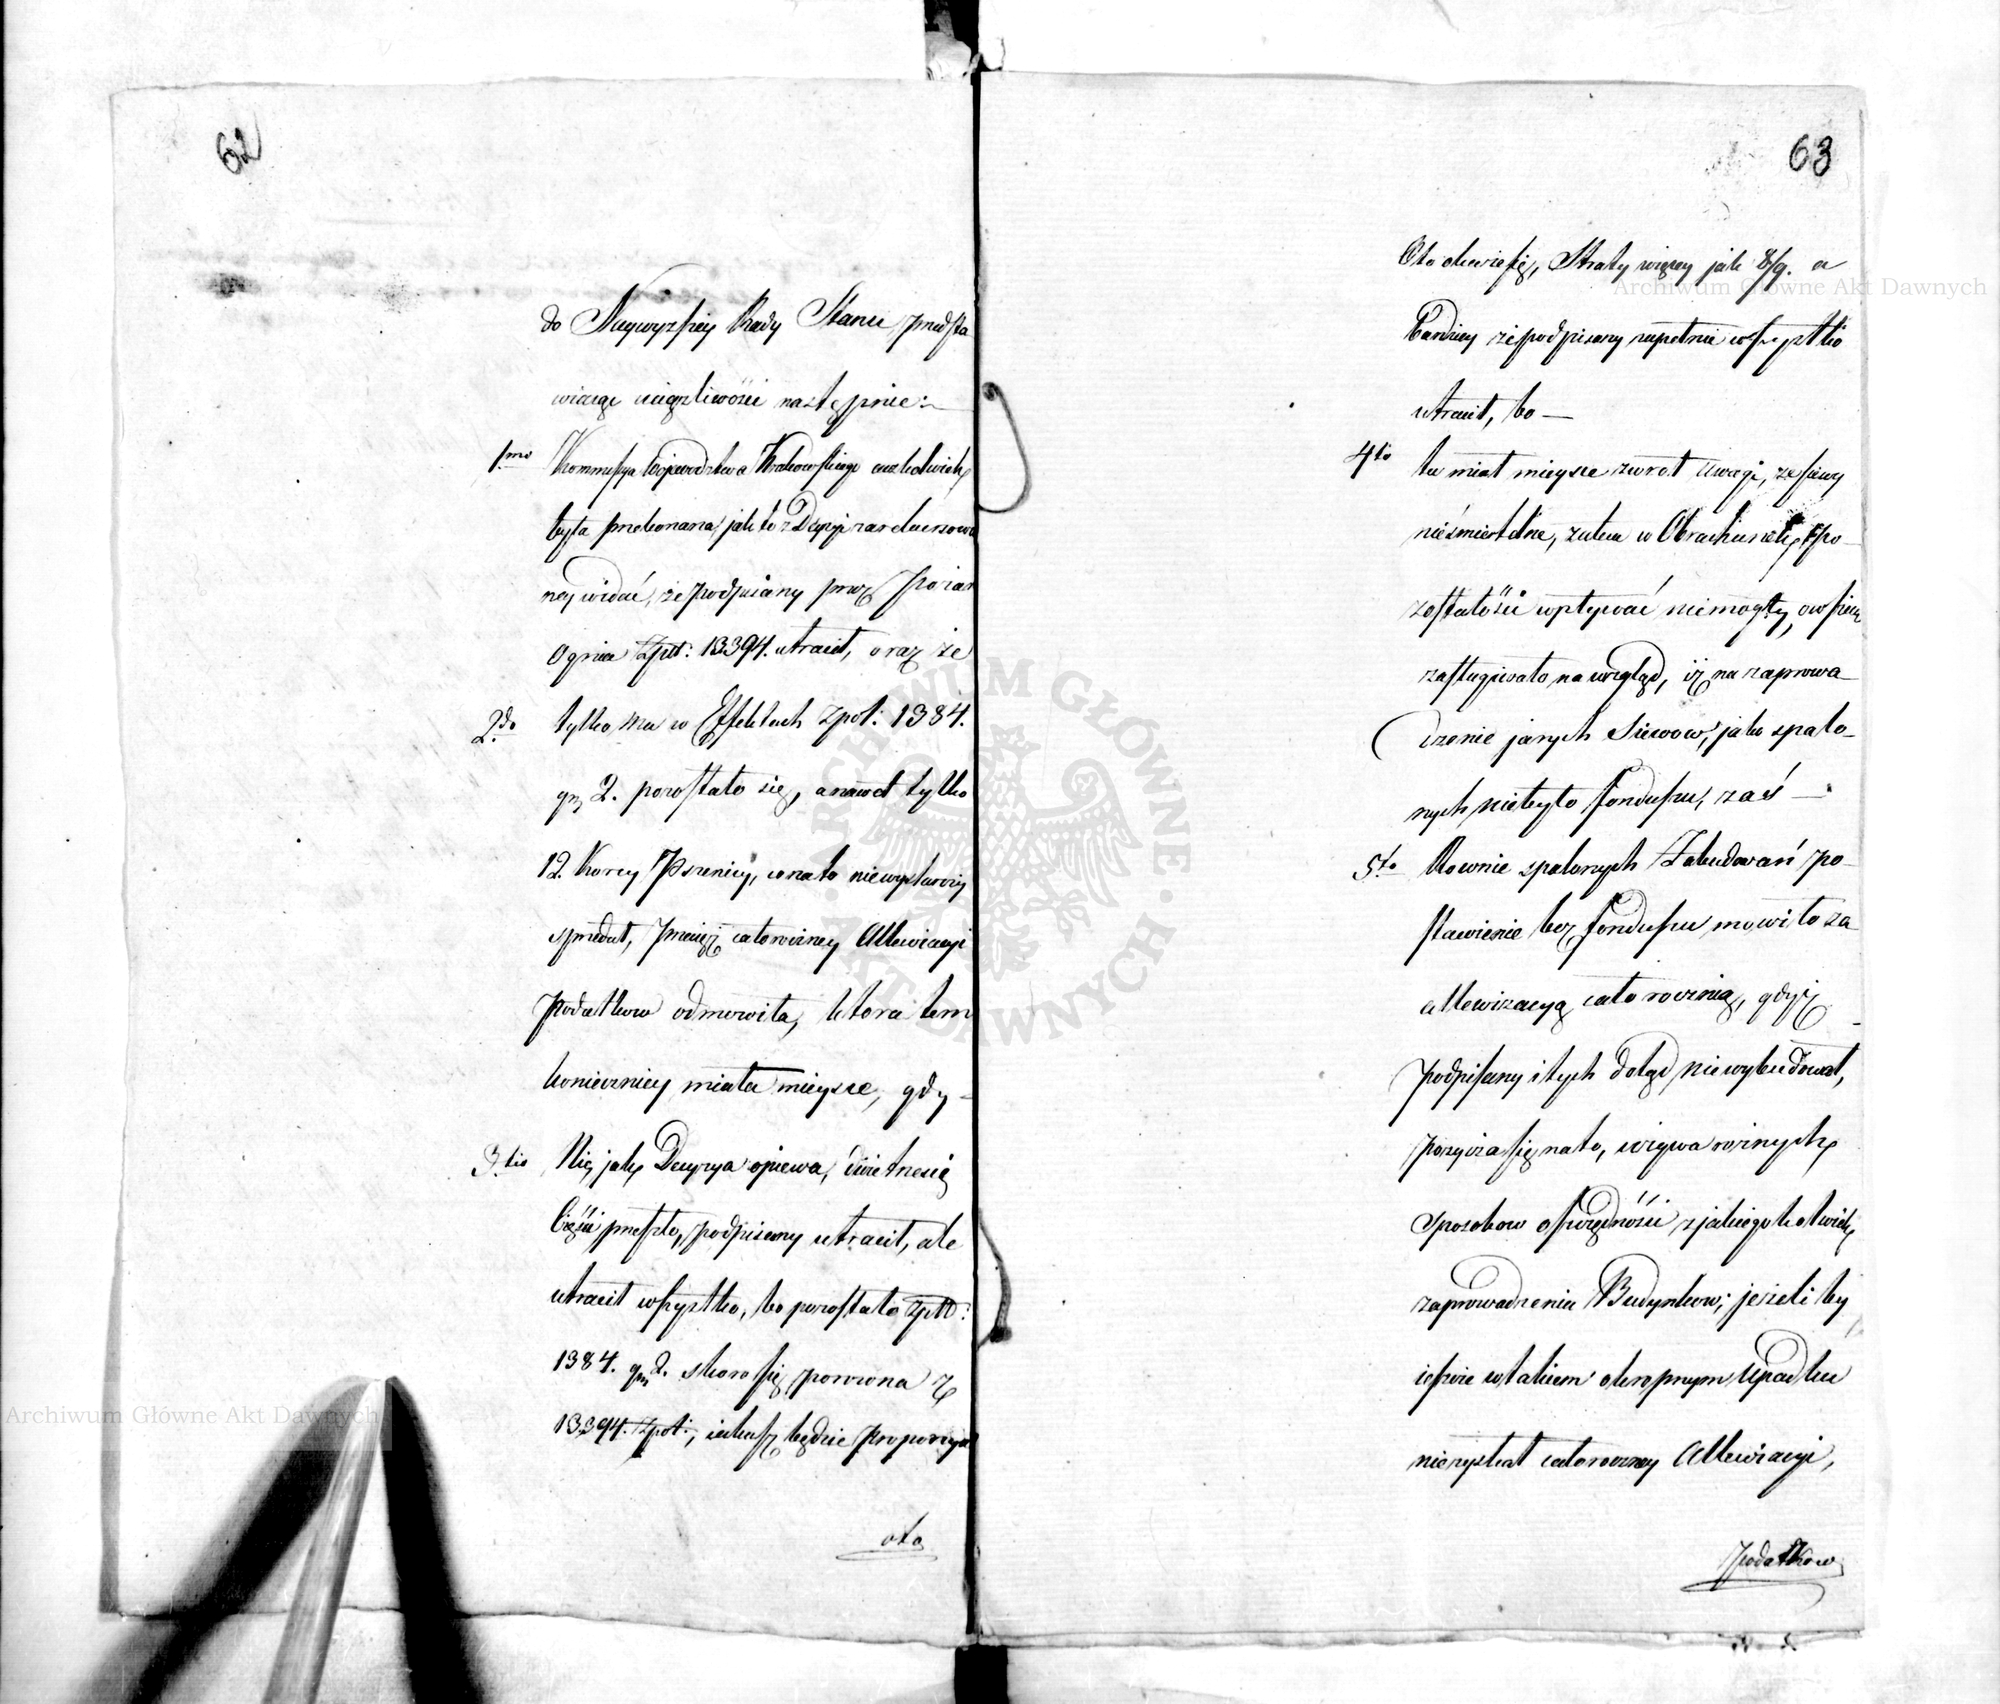 62
do Naywyzszey Rady Stanu przedsta
wiaiąc uciążliwości następnie:
1mo Kommissya Wojewodztwa Krakowskiego
była przekonana, jak to z Decyzji
ney widać, że podpisany przez Pożar
Ognia Złpol: 13394. utracił, oraz że
2do tylko Mu w Effektach Zpol: 1384.
gr 2. pozostało się, a nawet tylko
12 Korcy Pszenicy, co na to niewystarczy
sprzedał, przecięż całoroczney Allewiacyi
Podatkow odmowiła, ktora tem
konieczniey miała mieysce, gdy
3tio Nie, jak Decyzya opiewa, dwie trzecie
Części przeszło, podpisany utracił, ale
utracił wszystko, bo pozostało Złpol:
1384. gr 2. skoro się porowna z
13394. Złpol:, iakasz będzie proporcya
oto
63
Oto okaże się, Straty więcey jak 8/9. a
bardziey że podpisany zupełnie wszystko
utracił, bo
4to tu miał mieysce zwrot Uwagi, że
nieśmiertelne, zatem w Obrachunek po
zostałości wpływać niemogły, owszem
zasługiwało na wzgląd, iż na zaprowa
dzenie jarych Siewow, jako spalo
nych niebyło fonduszu, zaś
5to Rownie spalonych Zabudowań po
stawienie bez fonduszu mowiło za
allewizacyą całoroczną, gdyż
Podpisany i tych dotąd niewybudował,
pożycza się na to, wzywa rożnych
sposobow oszczędności z jakiegokolwiek
zaprowadzenia Budynkow; jeżeli by
ieszcze w takiem okropnym Upadku
niezyskał całoroczney Allewiacyi,
Podatkow
Archiwum Główne Akt Dawnych
Archiwum Główne Akt Dawnych
ARCHIWUM GŁÓWNE AKT DAWNYCH